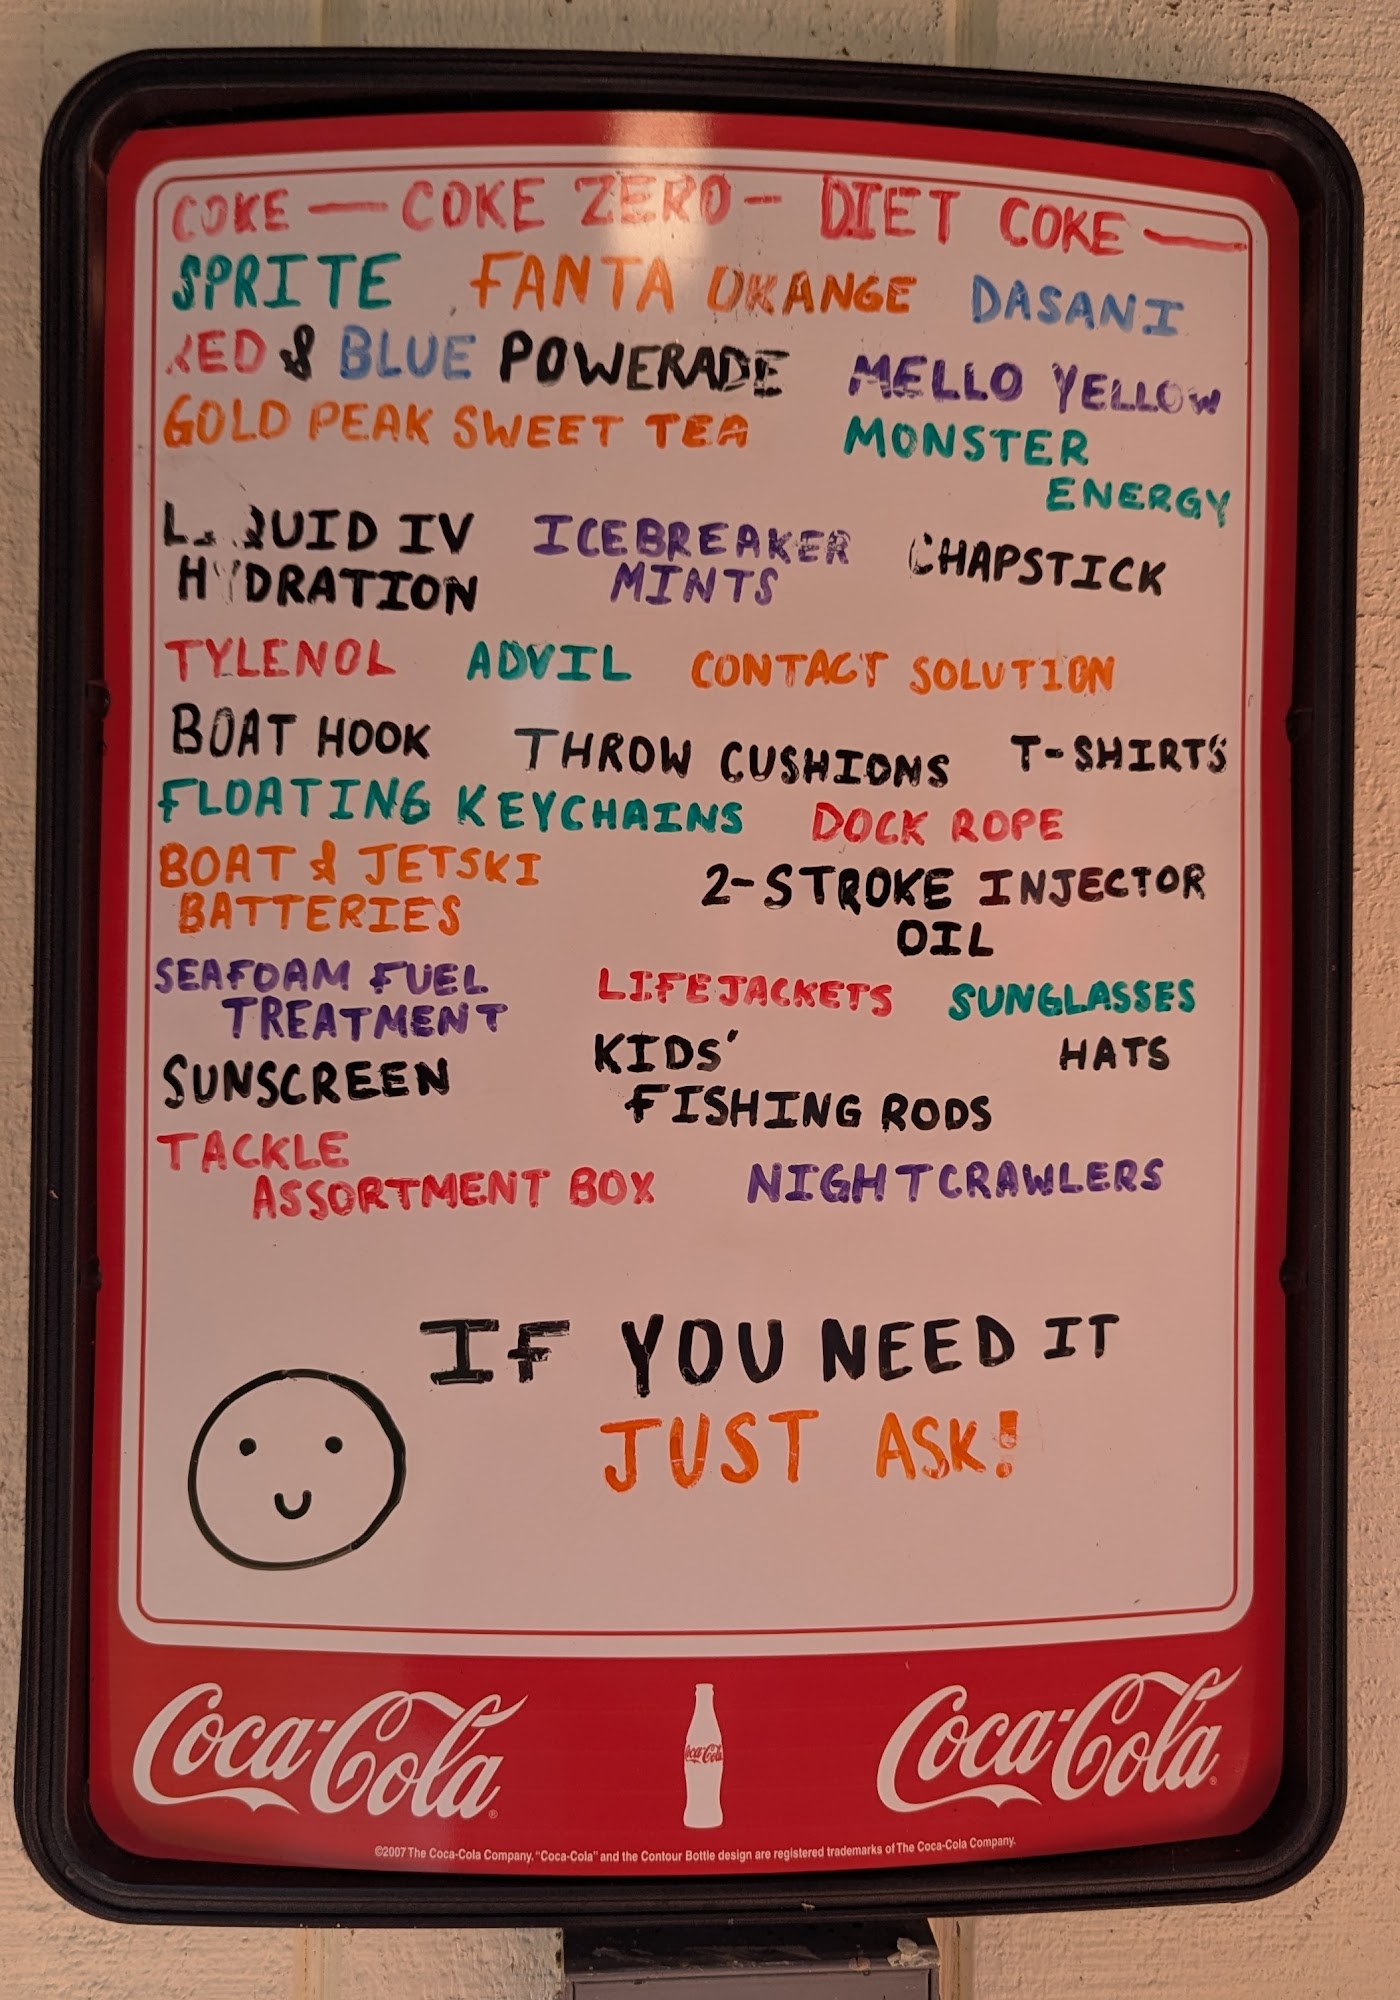 COKE — COKE ZERO - DIET COKE —
SPRITE FANTA ORANGE DASANI
RED & BLUE POWERADE MELLO YELLOW
GOLD PEAK SWEET TEA MONSTER
ENERGY
LIQUID IV ICEBREAKER CHAPSTICK
HYDRATION MINTS
TYLENOL ADVIL CONTACT SOLUTION
BOAT HOOK THROW CUSHIONS T-SHIRTS
FLOATING KEYCHAINS DOCK ROPE
BOAT & JETSKI 2-STROKE INJECTOR
BATTERIES OIL
SEAFOAM FUEL LIFEJACKETS SUNGLASSES
TREATMENT KIDS' HATS
SUNSCREEN FISHING RODS
TACKLE
ASSORTMENT BOX NIGHTCRAWLERS
IF YOU NEED IT
JUST ASK!
Coca-Cola® Coca-Cola Coca-Cola®
©2007 The Coca-Cola Company. "Coca-Cola" and the Contour Bottle design are registered trademarks of The Coca-Cola Company.